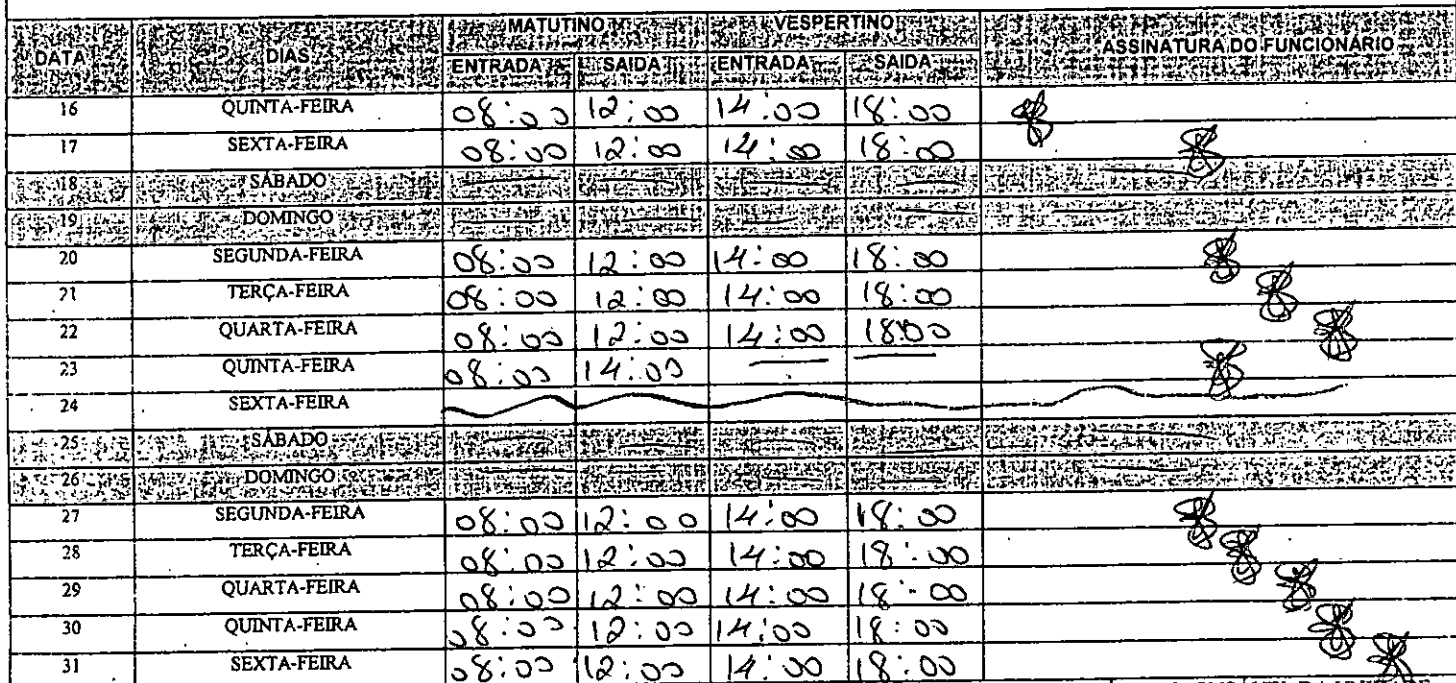 MATUTINO VESPERTINO
DATA DIAS ENTRADA SAIDA ENTRADA SAIDA ASSINATURA DO FUNCIONÁRIO
16 QUINTA-FEIRA 08:00 12:00 14:00 18:00
17 SEXTA-FEIRA 08:00 12:00 14:00 18:00
18 SÁBADO
19 DOMINGO
20 SEGUNDA-FEIRA 08:00 12:00 14:00 18:00
21 TERÇA-FEIRA 08:00 12:00 14:00 18:00
22 QUARTA-FEIRA 08:00 12:00 14:00 18:00
23 QUINTA-FEIRA 08:00 14:00
24 SEXTA-FEIRA
25 SÁBADO
26 DOMINGO
27 SEGUNDA-FEIRA 08:00 12:00 14:00 18:00
28 TERÇA-FEIRA 08:00 12:00 14:00 18:00
29 QUARTA-FEIRA 08:00 12:00 14:00 18:00
30 QUINTA-FEIRA 08:00 12:00 14:00 18:00
31 SEXTA-FEIRA 08:00 12:00 14:00 18:00